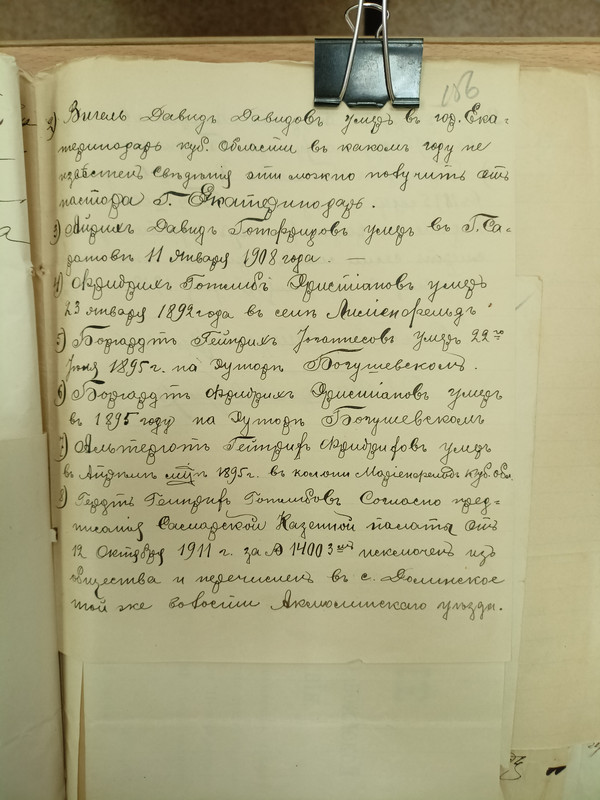 186
2) Вигель Давидъ Давидовъ умеръ въ гор. Ека-
теринодаръ куб. области въ какомъ году не
извѣстенъ свѣдѣнія эти можно получить отъ
пастора Г. Екатеринодаръ.
3) Айрихъ Давидъ Готфридовъ умеръ въ Г. Са-
ратовѣ 11 января 1908 года. —
4) Фридрихъ Готлибъ Христіановъ умеръ
23 января 1892 года въ селѣ
5) Боргардтъ Гейнрихъ Іоганнесовъ умеръ 22го
1895 г. на хуторѣ Богушевскомъ.
6) Боргардтъ Фридрихъ Христіановъ умеръ
въ 1895 году на хуторѣ Богушевскомъ
7) Альтерготъ Гейнрих Фридриховъ умеръ
въ Апрѣлѣ мцѣ 1895 г. въ колоніи Маріенфельдъ куб. обл.
8) Гердтъ Гейнрихъ Готлибовъ Согласно пред-
писанія Самарской Казенной палаты отъ
12 Октября 1911 г. за № 14003 исключенъ изъ
общества и перечисленъ въ с. Долинское
той же волости Акмолинскаго уѣзда.